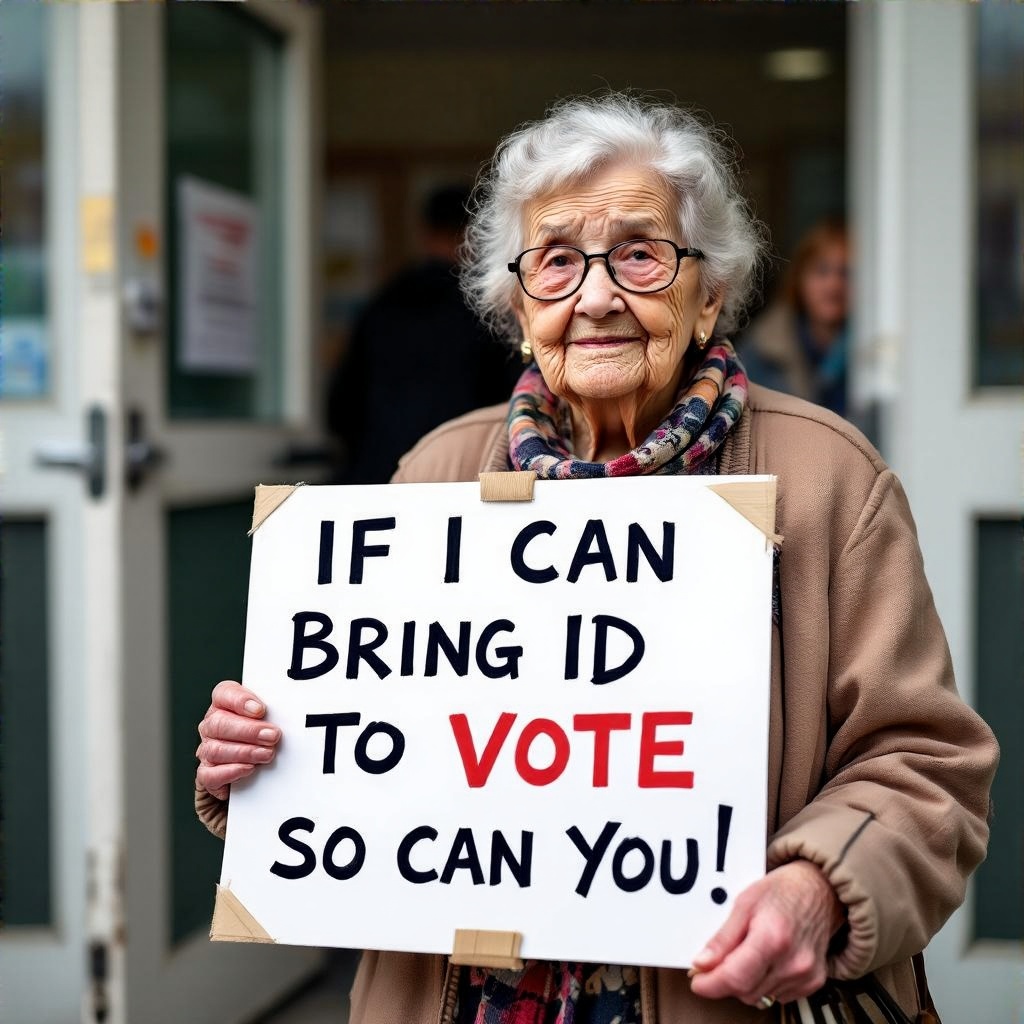 IF I CAN
BRING ID
TO VOTE
SO CAN YOU!